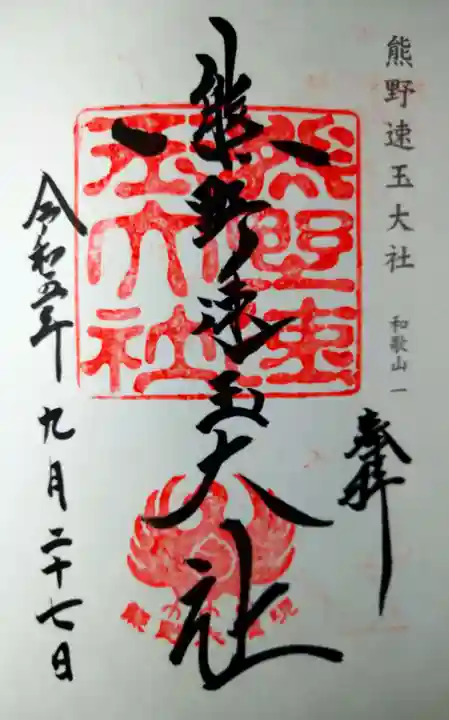 熊野速玉大社 和歌山一
奉拝
熊野速玉大社
熊野速玉大社
令和五年九月二十七日